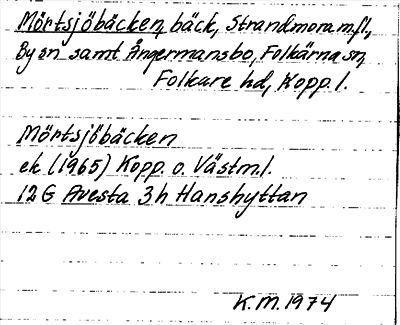 Mörtsjöbäcken, bäck, Strandmora m.fl.,
By sn samt Ångermansbo, Folkärna sn,
Folkare hd, Kopp. l.
Mörtsjöbäcken
ek (1965) Kopp. o. Västm. l.
12G Avesta 3h Hanshyttan
K.M. 1974